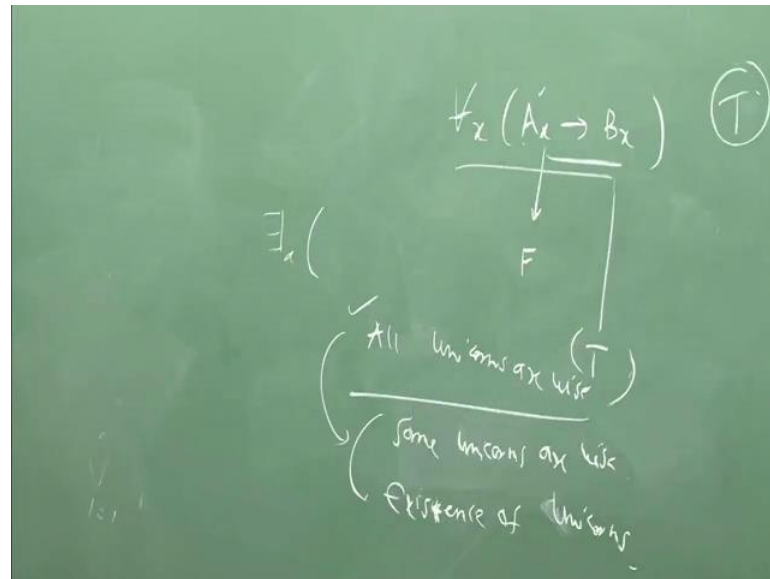 ∀x (Ax → Bx) T
F
∃x (
✓ All unicorns are wise (T)
Some unicorns are wise
Existence of Unicorns